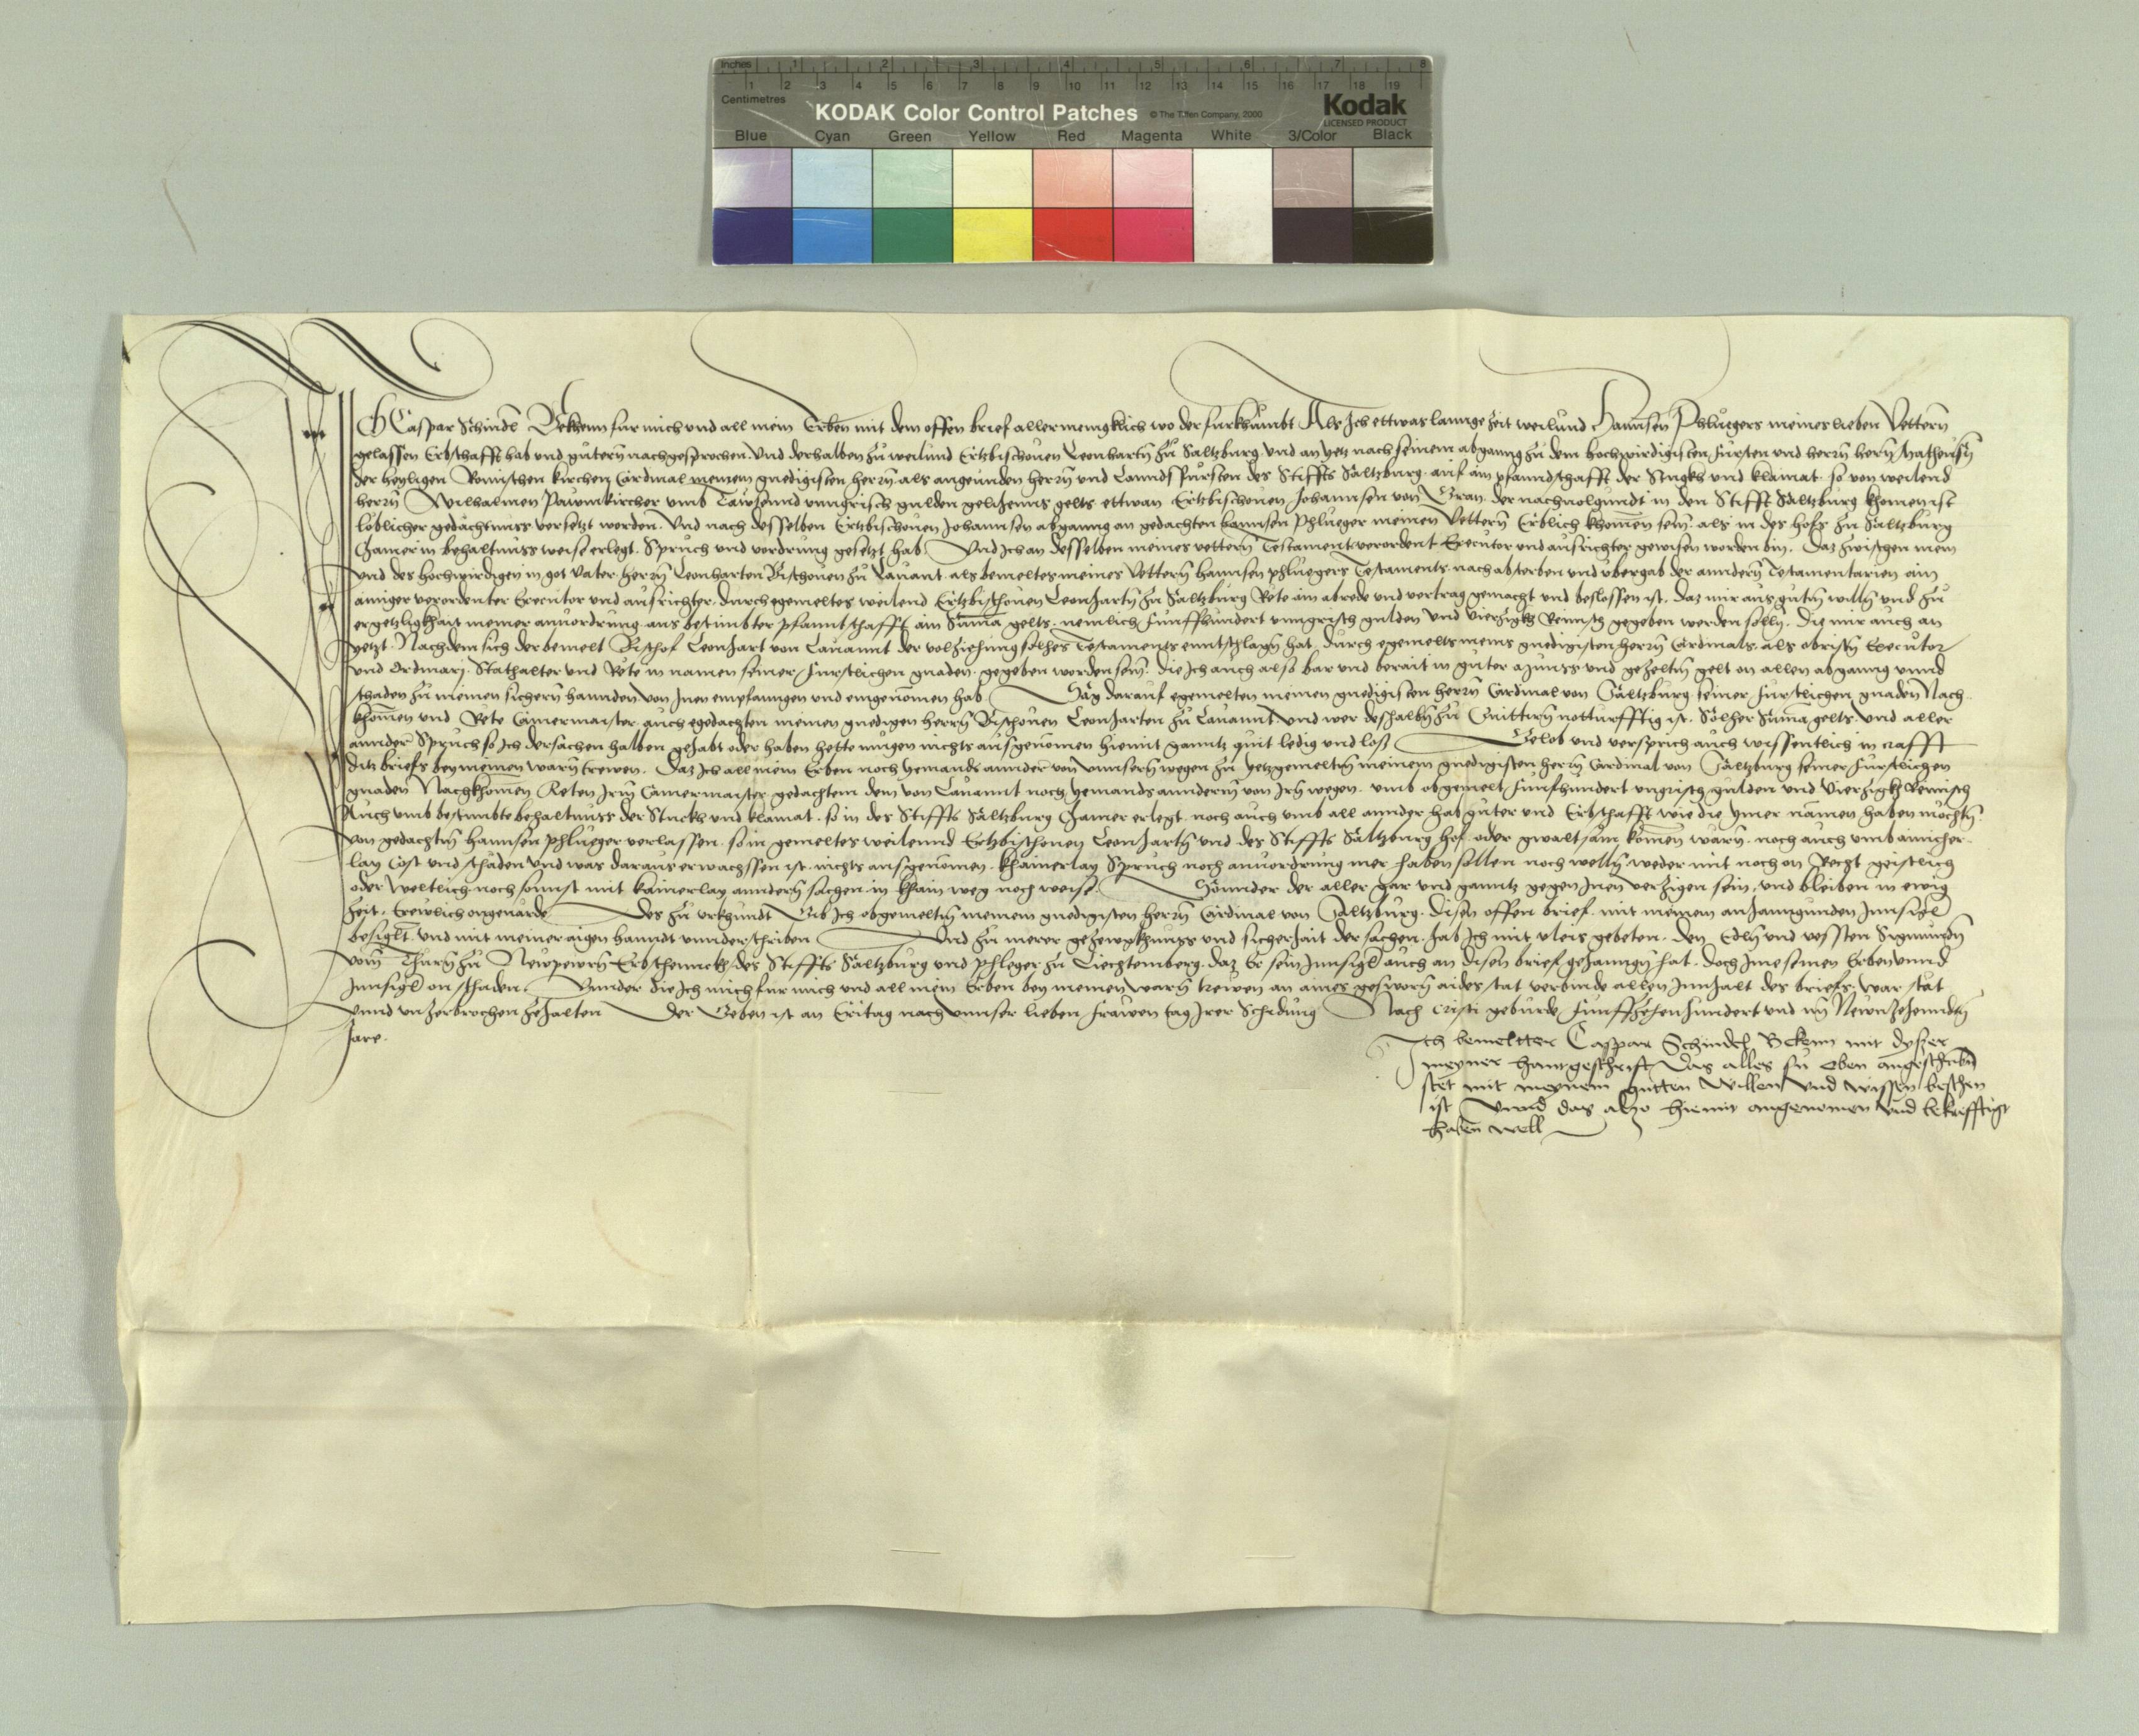 Inches 1 2 3 4 5 6 7 8
1 2 3 4 5 6 7 8 9 10 11 12 13 14 15 16 17 18 19
Centimetres
KODAK Color Control Patches © The Tiffen Company, 2000 Kodak
LICENSED PRODUCT
Blue Cyan Green Yellow Red Magenta White 3/Color Black
ICh Caspar Schindl Bekhenn fur mich und all mein Erben mit dem offen brief allermenigklich wo der furkhumbt Als Ich ettwas lannge zeit weilund Hannsen Phluegers meines lieben Vettern
gelassen Erbschafft hab und guetern nachgesprochen. Und derhalben zu weilund Ertzbischouen Leonhartn zu Saltzburg. Und an yetz nach seinem abganng zu dem hochwirdigisten Fürsten und herrn herrn Matheusn
der heyligen Romischen kirchen Cardinal meinem gnedigisten herrn als angeunden herrn und Lannds Fürsten des Stiffts Saltzburg. auf ain phanndschafft der Stugkh und klainat. so von weilend
herrn Wilhalmen Pawmkircher umb Tawsennd unngrisch gulden gelihenns gelts ettwan Ertzbischouen Johannsen von Gran. der nachuolgundt in den Stifft Saltzburg khomen ist
loblicher gedachtnuss versetzt worden. Und nach desselben Ertzbischouen Johannsen abganng an gedachten hannsen Phlueger meinen Vettern Erblich khomen sein. als in des hofs zu Saltzburg
Chamer in behaltnuss weise erlegt. Spruch und vordrung gesetzt hab. Und ich an desselben meines vettern Testament verordent Executor und ausrichter gewisen worden bin. Daz zwischen mein
Und des hochwirdigen in got Vater herrn Leonharten Bischouen zu Lauant. als bemeltes meines Vettern hannsen phluegers Testaments. nach absterben und ubergab der anndern Testamentarien ain
ainiger verordenter Executor und ausrichter. durch egemeltes weilend Ertzbischouen Leonhartn zu Saltzburg Rete ain abrede und vertrag gemacht und beslossen ist. daz mir aus gutn willn und zu
ergetzligkhait meiner anuordrung. aus bestimbter phanntschafft ain Suma gelts. nemlich Funffhundert unngrisch gulden und Vierzigkh Reinisch gegeben werden solln. Die mir auch an
yetzt. Nachdem sich der bemelt Bischof Leonhart von Lauannt der volziehung solhes Testaments enntschlagn hat. durch egemelts meins gnedigisten herrn Cardinals. als obristn Executor
und Ordinarj. Stathalter und Rete in namen seiner Furstlichen gnaden. gegeben worden sein. die Ich auch also bar und berait in guter munss und gezeltn gelt on allen abganng unnd
schaden zu meinen sichern hannden von Inen emphanngen und eingenomen hab Sag darauf egemelten meinen gnedigisten herrn Cardinal von Saltzburg. seiner Furstlichen gnaden Nach
khomen und Rete Camermaister. auch egedachten meinen gnedigen herrn Bischouen Leonharten zu Lauannt. und wer deshalbn zu Quittirn notturfftig ist. Solher Suma gelts. und aller
annder Spruch so Ich der sachen halben gehabt oder haben hette mugen nichts ausgenomen hiemit ganntz quit ledig und loß Gelob und versprich auch wissentlich in crafft
ditz briefs bey meinen warn trewen. Daz Ich all mein Erben noch yemands annder von unnsern wegen zu yetzgemeltn meinem gnedigisten herrn Cardinal von Saltzburg seiner Furstlichen
gnaden Nachkhomen Reten Irm Camermaister. gedachtem dem von Lauannt noch yemands anndern von Irn wegen. umb obgemelt Funfhundert ungrisch gulden und Vierzigkh Reinisch
Auch umb bestimbte behaltnuss der Stuckh und klainat. so in des Stiffts Saltzburg Chamer erlegt. noch auch umb all annder hab guter und Erbschafft wie die ymer namen haben mochtn
von gedachtn hannsen phlueger verlassen. so in gemeltes weilennd Ertzbischouen Leonhartn und des Stiffts Saltzburg hof. oder gwaltsam komen warn. noch auch umb ainicher
lay Cost und schaden und was daraus erwachssen ist. nichts ausgenomen. khainerlay Spruch noch anuordrung mer haben sollen noch welln weder mit noch on Recht geistlich
oder weltlich noch sonnst mit kainerlay anndern sachen in khain weg noch weise. Sonnder der aller gar und ganntz gegen Inen verzigen sein. und bleiben in ewig
zeit. Trewlich ongeuarde Des zu urkhundt Gib Ich obgemeltn meinem gnedigisten herrn Cardinal von Saltzburg. disen offen brief. mit meinem anhanngunden Innsigl
besiglt. und mit meiner aigen hanndt unnderschriben Und zu merer gezewgkhnuss und sicherhait der sachen. hab Ich mit vleis gebeten. den Edln und vessten Sigmundn
vom Thurn zu Newpewrn Erbschennckh des Stiffts Saltzburg und phleger zu Liechtemberg. daz Er sein Innsigl auch an disen brief gehanngn hat. doch Ime seinen Erben unnd
Innsigl on schaden. Unnder die Ich mich fur mich und all mein Erben bey meinen warn trewen an aines gesworn aides stat verbinde allen Innhalt des briefs. war stat
unnd unzerbrochen zehalten Der Geben ist an Eritag nach unnser lieben Frawen tag Irer Schidung Nach Cristi geburde Funffzehenhundert und im Newnzehenndtn
Jare.
Ich bemeltter Caspar Schindel Bekenn mit dyser
meyner hantgeschrifft Das alles su oben angeschribn
stet mit meynem gutten Willen und Wissen beschen
ist Unnd das alzo hiemit angenomen und bekrefftigt
haben well